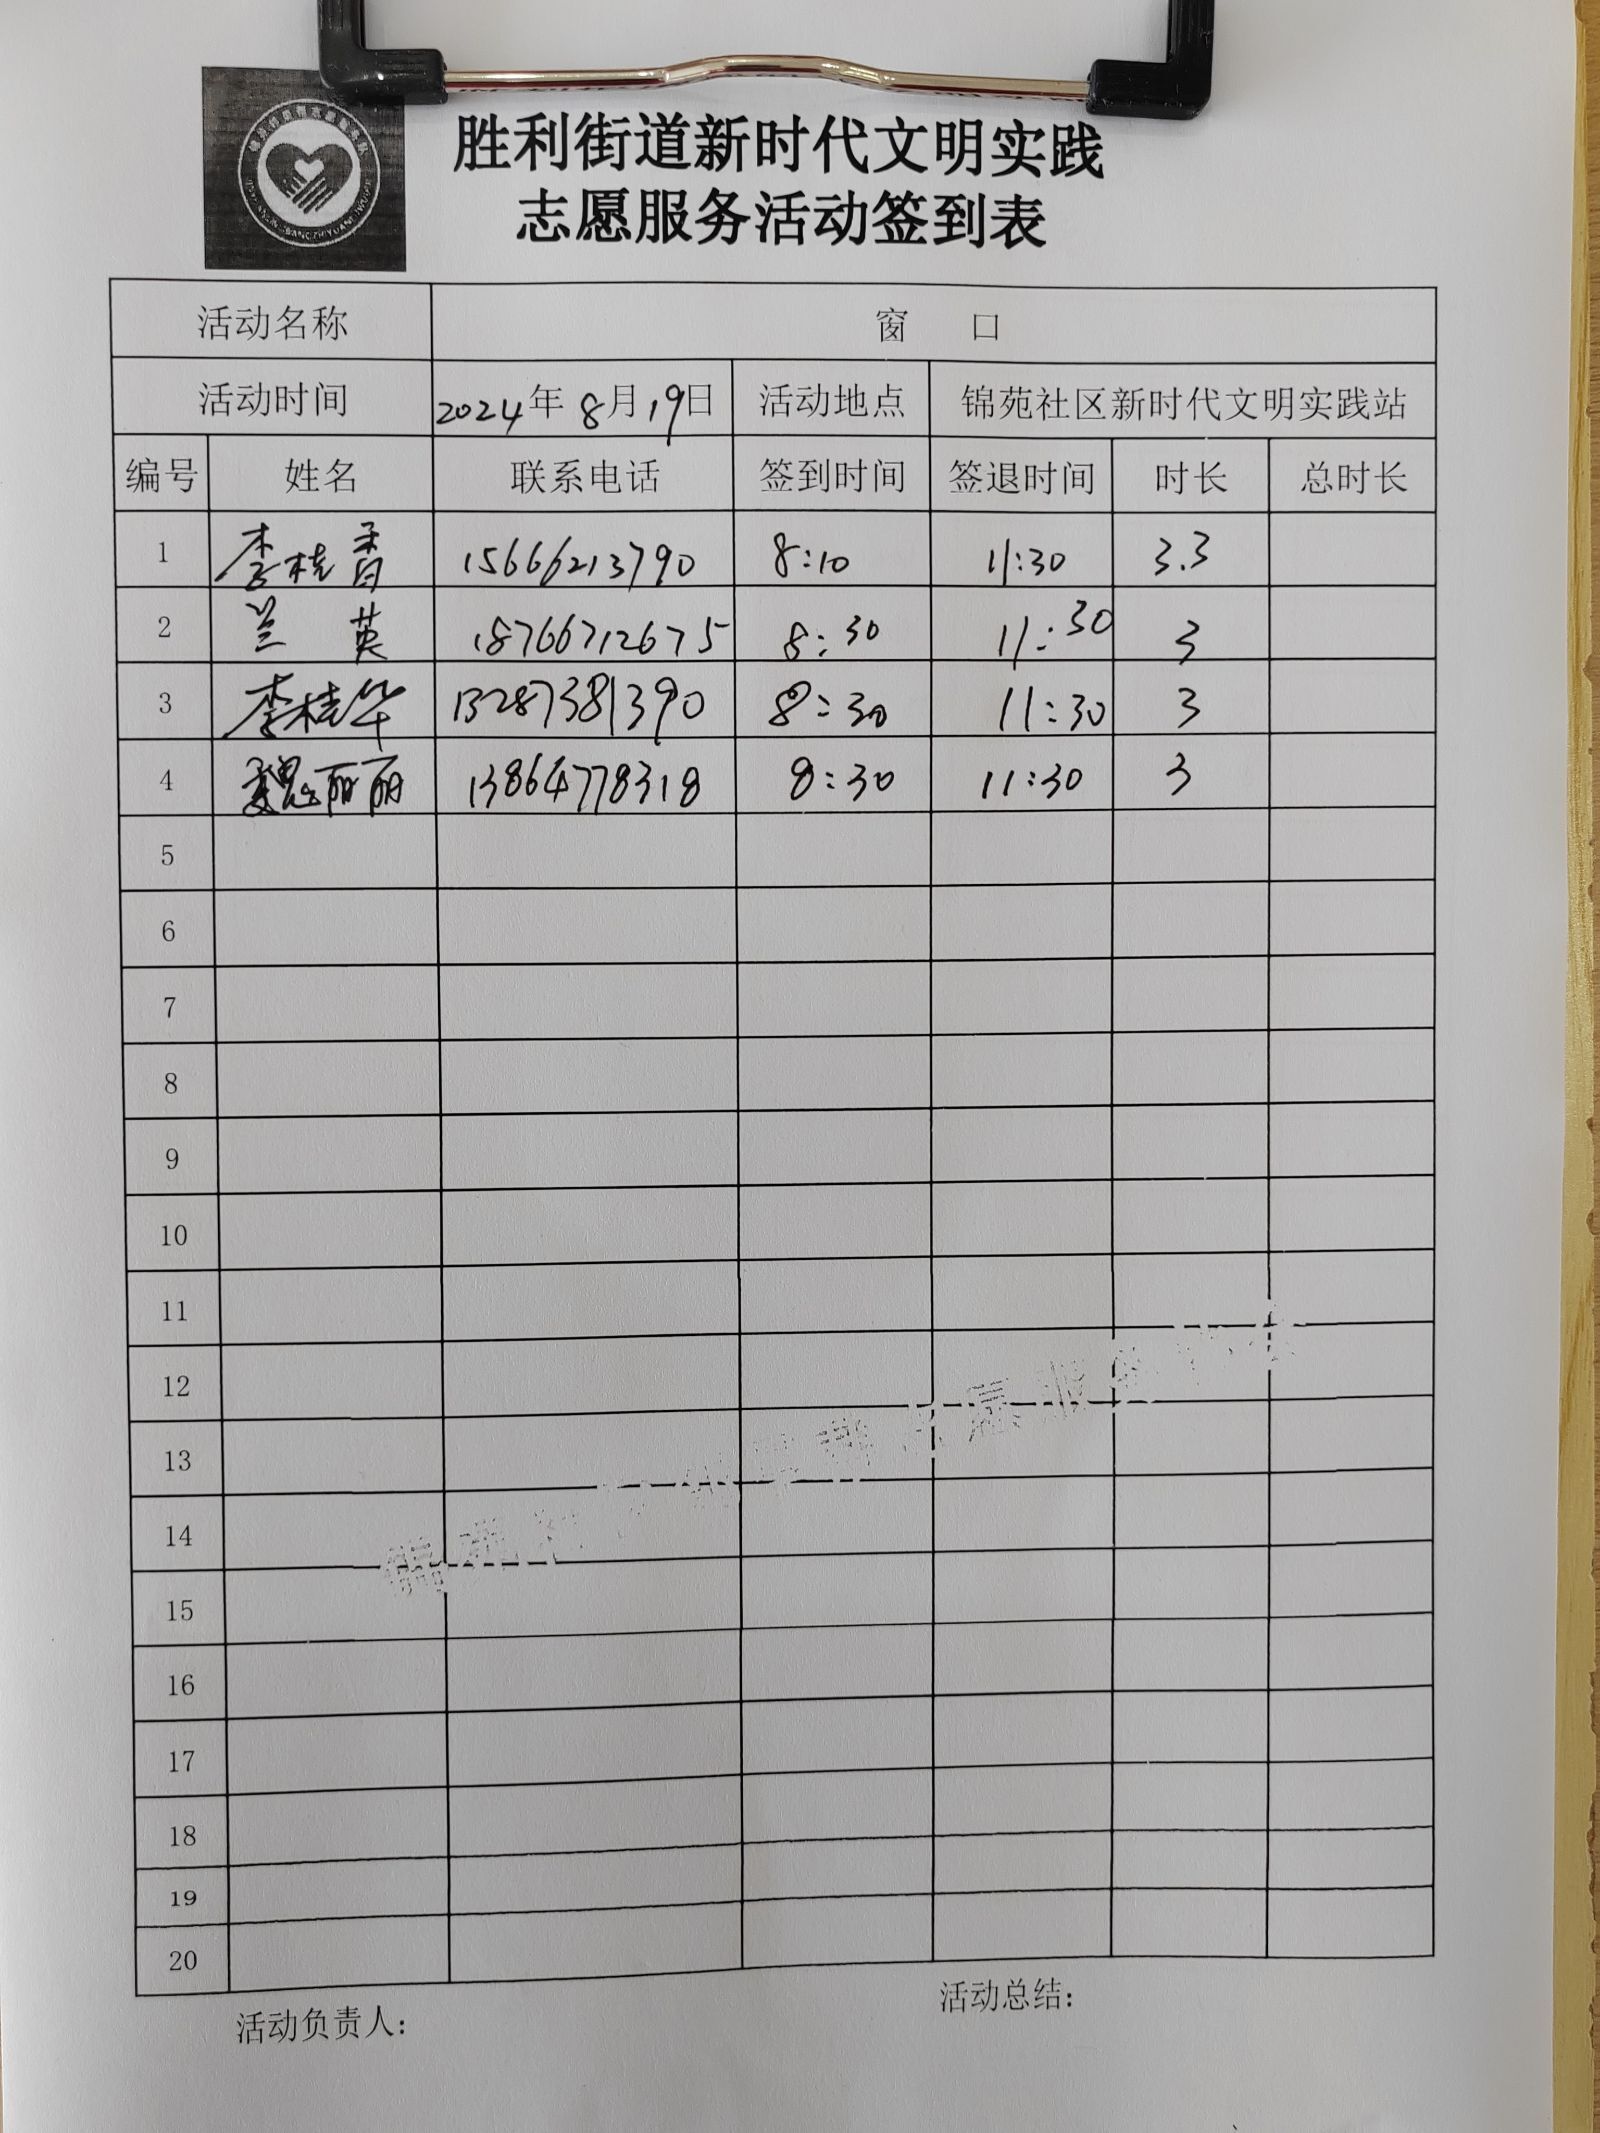 胜利街道新时代文明实践
志愿服务活动签到表
活动名称 窗 口
活动时间 2024年 8月19日 活动地点 锦苑社区新时代文明实践站
编号 姓名 联系电话 签到时间 签退时间 时长 总时长
1 李桂香 15666213790 8:10 11:30 3.3
2 兰 英 18766712675 8:30 11:30 3
3 李桂华 13287381390 8:30 11:30 3
4 魏丽丽 13864778318 8:30 11:30 3
5
6
7
8
9
10
11
12
13
14
15
16
17
18
19
20
活动负责人:
活动总结: